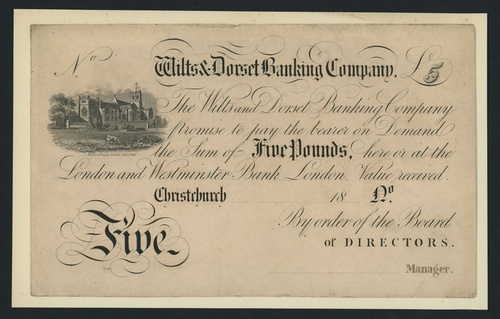 No
Wilts & Dorset Banking Company. £5
The Wilts and Dorset Banking Company
promise to pay the bearer on Demand
the Sum of Five Pounds, here or at the
London and Westminster Bank London Value received.
Christchurch 18 No
By order of the Board
of DIRECTORS.
Five
Manager.